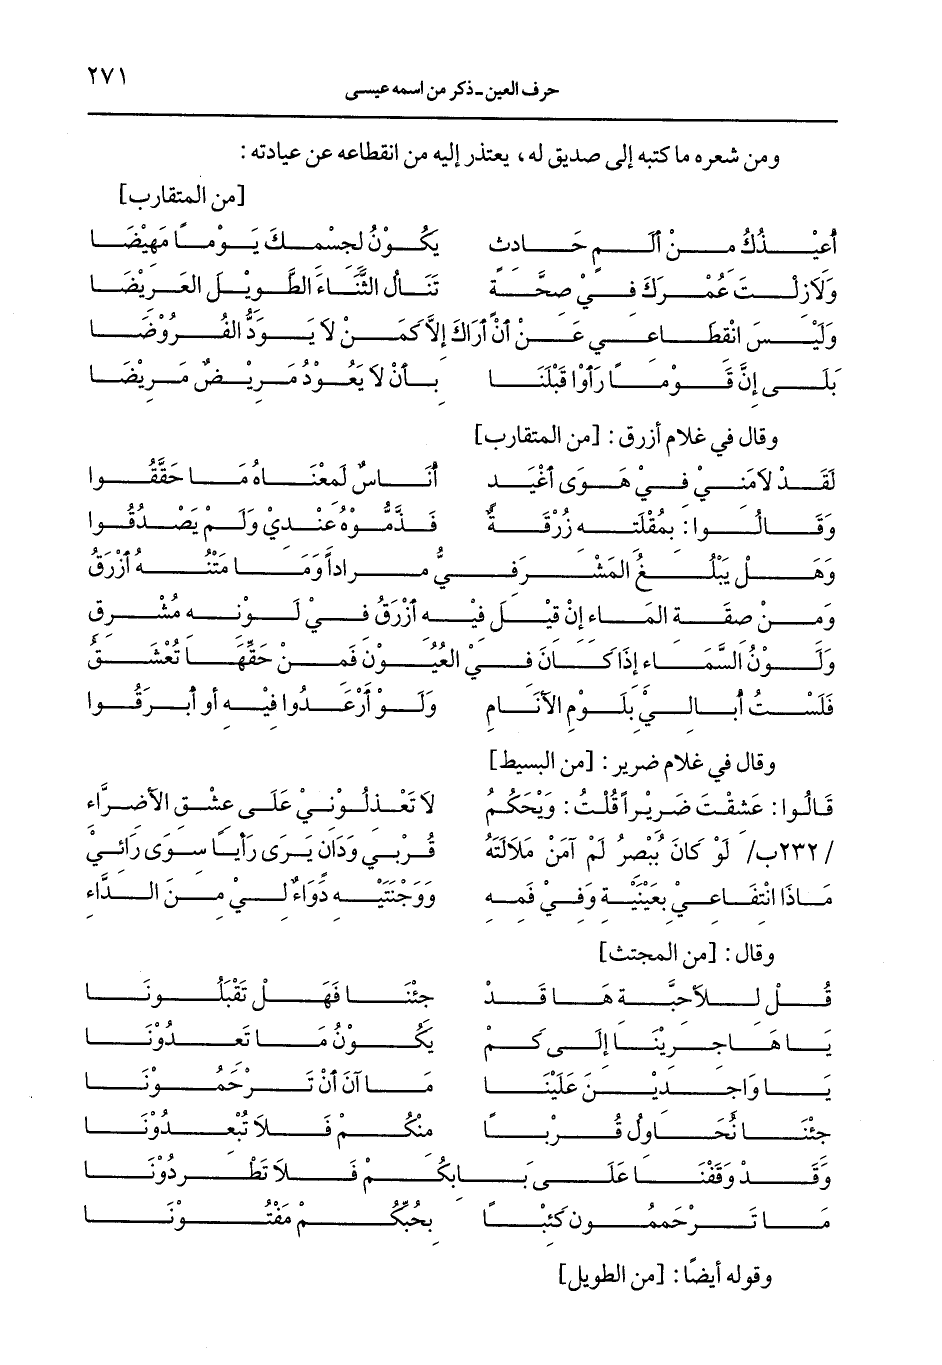 حرف العين - ذكر من اسمه عيسى ٢٧١
ومن شعره ما كتبه إلى صديق له، يعتذر إليه من انقطاعه عن عيادته:
[من المتقارب]
أُعِيْذُكَ مِنْ أَلَمٍ حَادِثٍ يَكُوْنُ لِجِسْمِكَ يَوْماً مَهِيْضَا
وَلَازِلْتَ عُمْرَكَ فِيْ صِحَّةٍ تَنَالُ الثَّنَاءَ الطَّوِيْلَ العَرِيْضَا
وَلَيْسَ انْقِطَاعِي عَنْ أَنْ أَرَاكَ إِلَّا كَمَنْ لَا يَوَدُّ الفُرُوْضَا
بَلَى إِنَّ قَوْماً رَأَوْا قَبْلَنَا بِأَنْ لَا يَعُوْدُ مَرِيْضٌ مَرِيْضَا
وقال في غلام أزرق: [من المتقارب]
لَقَدْ لَامَنِيْ فِيْ هَوَى أَغْيَدٍ أُنَاسٌ لَمَعْنَاهُ مَا حَقَّقُوا
وَقَالُوا: بِمُقْلَتِهِ زُرْقَةٌ فَذَمُّوْهُ عِنْدِيْ وَلَمْ يَصْدُقُوا
وَهَلْ يَبْلُغُ المَشْرَفِيُّ مِراداً وَمَا مَتْنُهُ أَزْرَقُ
وَمِنْ صِفَةِ المَاءِ إِنْ قِيْلَ فِيْهِ أَزْرَقُ فِيْ لَوْنِهِ مُشْرِقِ
وَلَوْنُ السَّمَاءِ إِذَا كَانَ فِيْ العُيُوْنِ فَمِنْ حَقِّهَا تُعْشَقُ
فَلَسْتُ أُبَالِيْ بِلَوْمِ الأَنَامِ وَلَوْ أَرْعَدُوا فِيْهِ أو أَبرَقُوا
وقال في غلام ضرير: [من البسيط]
قَالُوا: عَشِقْتَ ضَرِيْراً قُلْتُ: وَيْحَكُمُ لَا تَعْذِلُوْنِيْ عَلَى عِشْقِ الأَضِرَّاءِ
/٢٣٢ب/ لَوْ كَانَ يُبْصِرُ لَمْ آمَنْ مَلَالَتَهُ قُرْبِي وَدَانِ يَرَى رَأْياً سِوَى رَائِيْ
مَاذَا انْتِفَاعِيْ بِعَيْنَيْهِ وَفِيْ فَمِهِ وَوَجْنَتَيْهِ دَوَاءٌ لِيْ مِنَ الدَّاءِ
وقال: [من المجتث]
قُلْ لِلأَحِبَّةِ هَا قَدْ جِئْنَا فَهَلْ تَقْبَلُونَا
يَا هَاجِرِيْنَا إِلَى كَمْ يَكُوْنُ مَا تَعِدُوْنَا
يَا وَاجِدِيْنَ عَلَيْنَا مَا آنَ أَنْ تَرْحَمُوْنَا
جِئْنَا نُحَاوِلُ قُرْباً مِنْكُمْ فَلَا تُبْعِدُوْنَا
وَقَدْ وَقَفْنَا عَلَى بَابِكُمْ فَلَا تَطْرِدُوْنَا
مَا تَرْحَمُون كَئِيْباً بِحُبِّكُمْ مَفْتُوْنَا
وقوله أيضًا: [من الطويل]